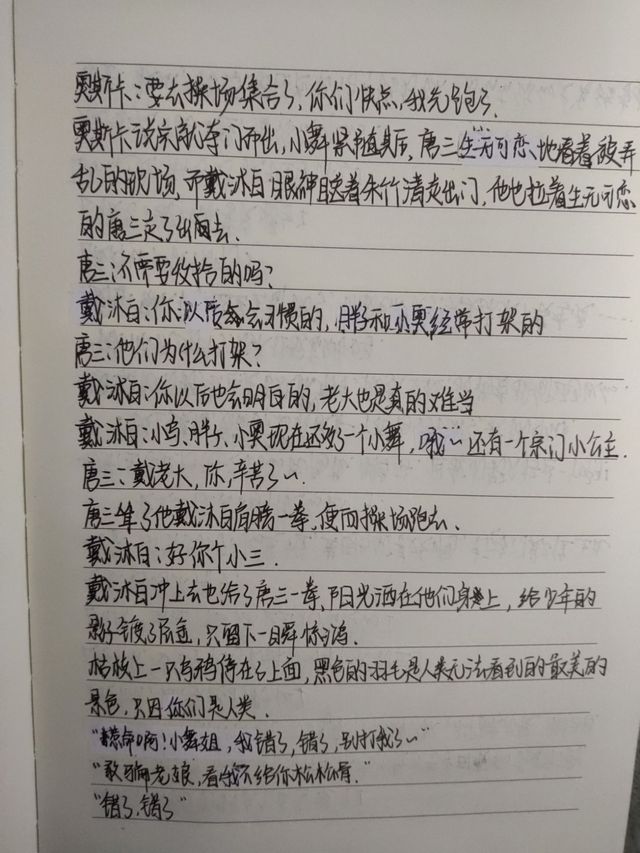 奥斯卡：要去操场集合了，你们快点，我先跑了.
奥斯卡说完就夺门而出，小舞紧随其后，唐三生无可恋、地看着被弄
乱的现场，而戴沐白眼神瞄着朱竹清走出门，他也拉着生无可恋
的唐三走了出去.
唐三：不需要收拾的吗？
戴沐白：你以后会习惯的，胖子和小奥经常打架的
唐三：他们为什么打架？
戴沐白：你以后也会明白的，老大也是真的难当
戴沐白：小奥现在还多了一个小舞，哦…还有一个宗门小公主.
唐三：戴老大，你，辛苦了…
唐三了他戴沐白肩膀一拳，便向操场跑去.
戴沐白：好你个小三.
戴沐白冲上去也给了唐三一拳，阳光洒在他们身上，给少年的
影子镀了层金，只留下一瞬惊鸿.
枯枝上一只乌鸦停在了上面，黑色的羽毛是人类无法看到的最美的
景色，只因你们是人类.
“救命啊！小舞姐，我错了，错了，别打我了…”
“敢骗老娘，看我不给你松松骨.”
“错了，错了”